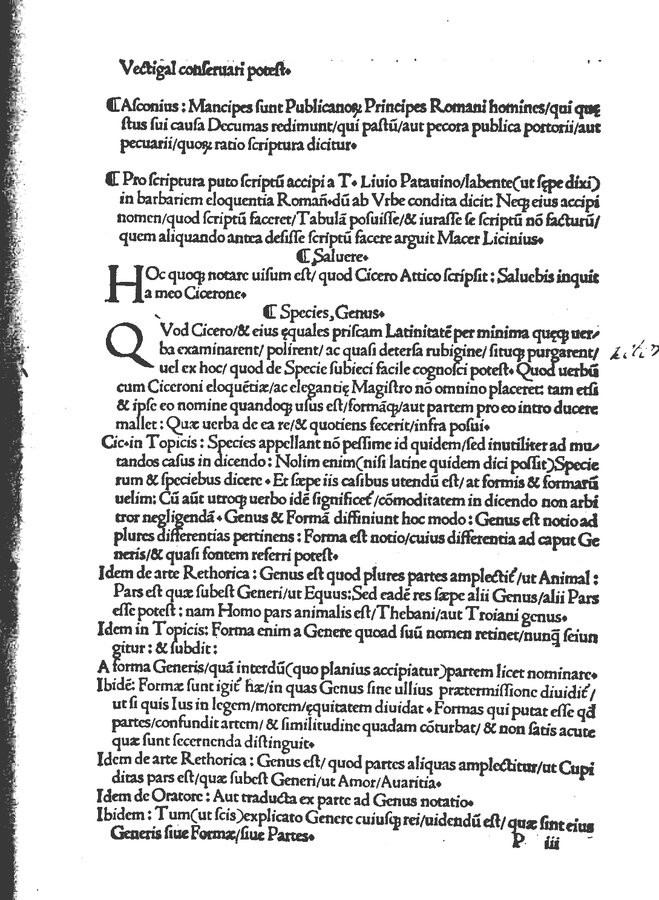 Vectigal conseruari potest.
¶Asconius : Mancipes sunt Publicanoꝝ Principes Romani homines/qui quę
stus sui causa Decumas redimunt/qui pastū/aut pecora publica portorii/aut
pecuarii/quoꝝ ratio scriptura dicitur.
¶ Pro scriptura puto scriptū accipi a T. Liuio Patauino/labente(ut sępe dixi)
in barbariem eloquentia Romañ.dū ab Vrbe condita dicit: Neqꝫ eius accipi
nomen/quod scriptū faceret/Tabulā posuisse/& iurasse se scriptū nō facturū/
quem aliquando antea desisse scriptū facere arguit Macer Licinius.
¶ Saluere.
HOc quoqꝫ notare uisum est/ quod Cicero Attico scripsit : Saluebis inquit
a meo Cicerone.
¶ Species, Genus.
QVod Cicero/& eius ęquales priscam Latinitatē per minima quęqꝫ uer/
ba examinarent/ polirent/ ac quasi detersa rubigine/ situqꝫ purgarent/
uel ex hoc/ quod de Specie subieci facile cognosci potest. Quod uerbū
cum Ciceroni eloquētiæ/ac elegantię Magistro nō omnino placeret: tam etsi
& ipse eo nomine quandoqꝫ usus est/formāqꝫ/aut partem pro eo intro ducere
mallet : Quæ uerba de ea re/& quotiens fecerit/infra posui.
Cic.in Topicis : Species appellant nō pessime id quidem/sed inutiliter ad mu/
tandos casus in dicendo : Nolim enim(nisi latine quidem dici possit)Specie
rum & speciebus dicere . Et sæpe iis casibus utendū est/ at formis & formarū
uelim: Cū aūt utroqꝫ uerbo idē significet́/cōmoditatem in dicendo non arbi
tror negligendā . Genus & Formā diffiniunt hoc modo : Genus est notio ad
plures differentias pertinens : Forma est notio/cuius differentia ad caput Ge
neris/& quasi fontem referri potest.
Idem de arte Rethorica : Genus est quod plures partes amplectit́/ut Animal :
Pars est quæ subest Generi/ut Equus:Sed eadē res sæpe alii Genus/alii Pars
esse potest : nam Homo pars animalis est/Thebani/aut Troiani genus.
Idem in Topicis: Forma enim a Genere quoad suū nomen retinet/nunq̄ seiun
gitur : & subdit :
A forma Generis/quā interdū(quo planius accipiatur)partem licet nominare.
Ibidē: Formæ sunt igit́ hæ/in quas Genus sine ullius prætermissione diuidit́/
ut si quis Ius in legem/morem/ęquitatem diuidat . Formas qui putat esse qđ
partes/confundit artem/ & similitudine quadam cōturbat/ & non satis acute
quæ sunt secernenda distinguit.
Idem de arte Rethorica : Genus est/ quod partes aliquas amplectitur/ut Cupi
ditas pars est/quæ subest Generi/ut Amor/Auaritia.
Idem de Oratore : Aut traducta ex parte ad Genus notatio.
Ibidem : Tum(ut scis)explicato Genere cuiusqꝫ rei/uidendū est/ quæ sint eius
Generis siue Formæ/siue Partes.
P iii